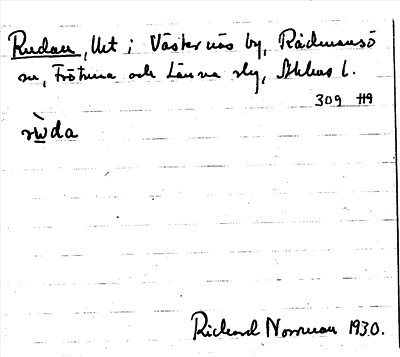 Rudan, Utt i Västernäs by, Rådmansö
sn, Frötuna och Länna sly, Sthlms l.
309 119
rẁda
Rickard Norrman 1930.